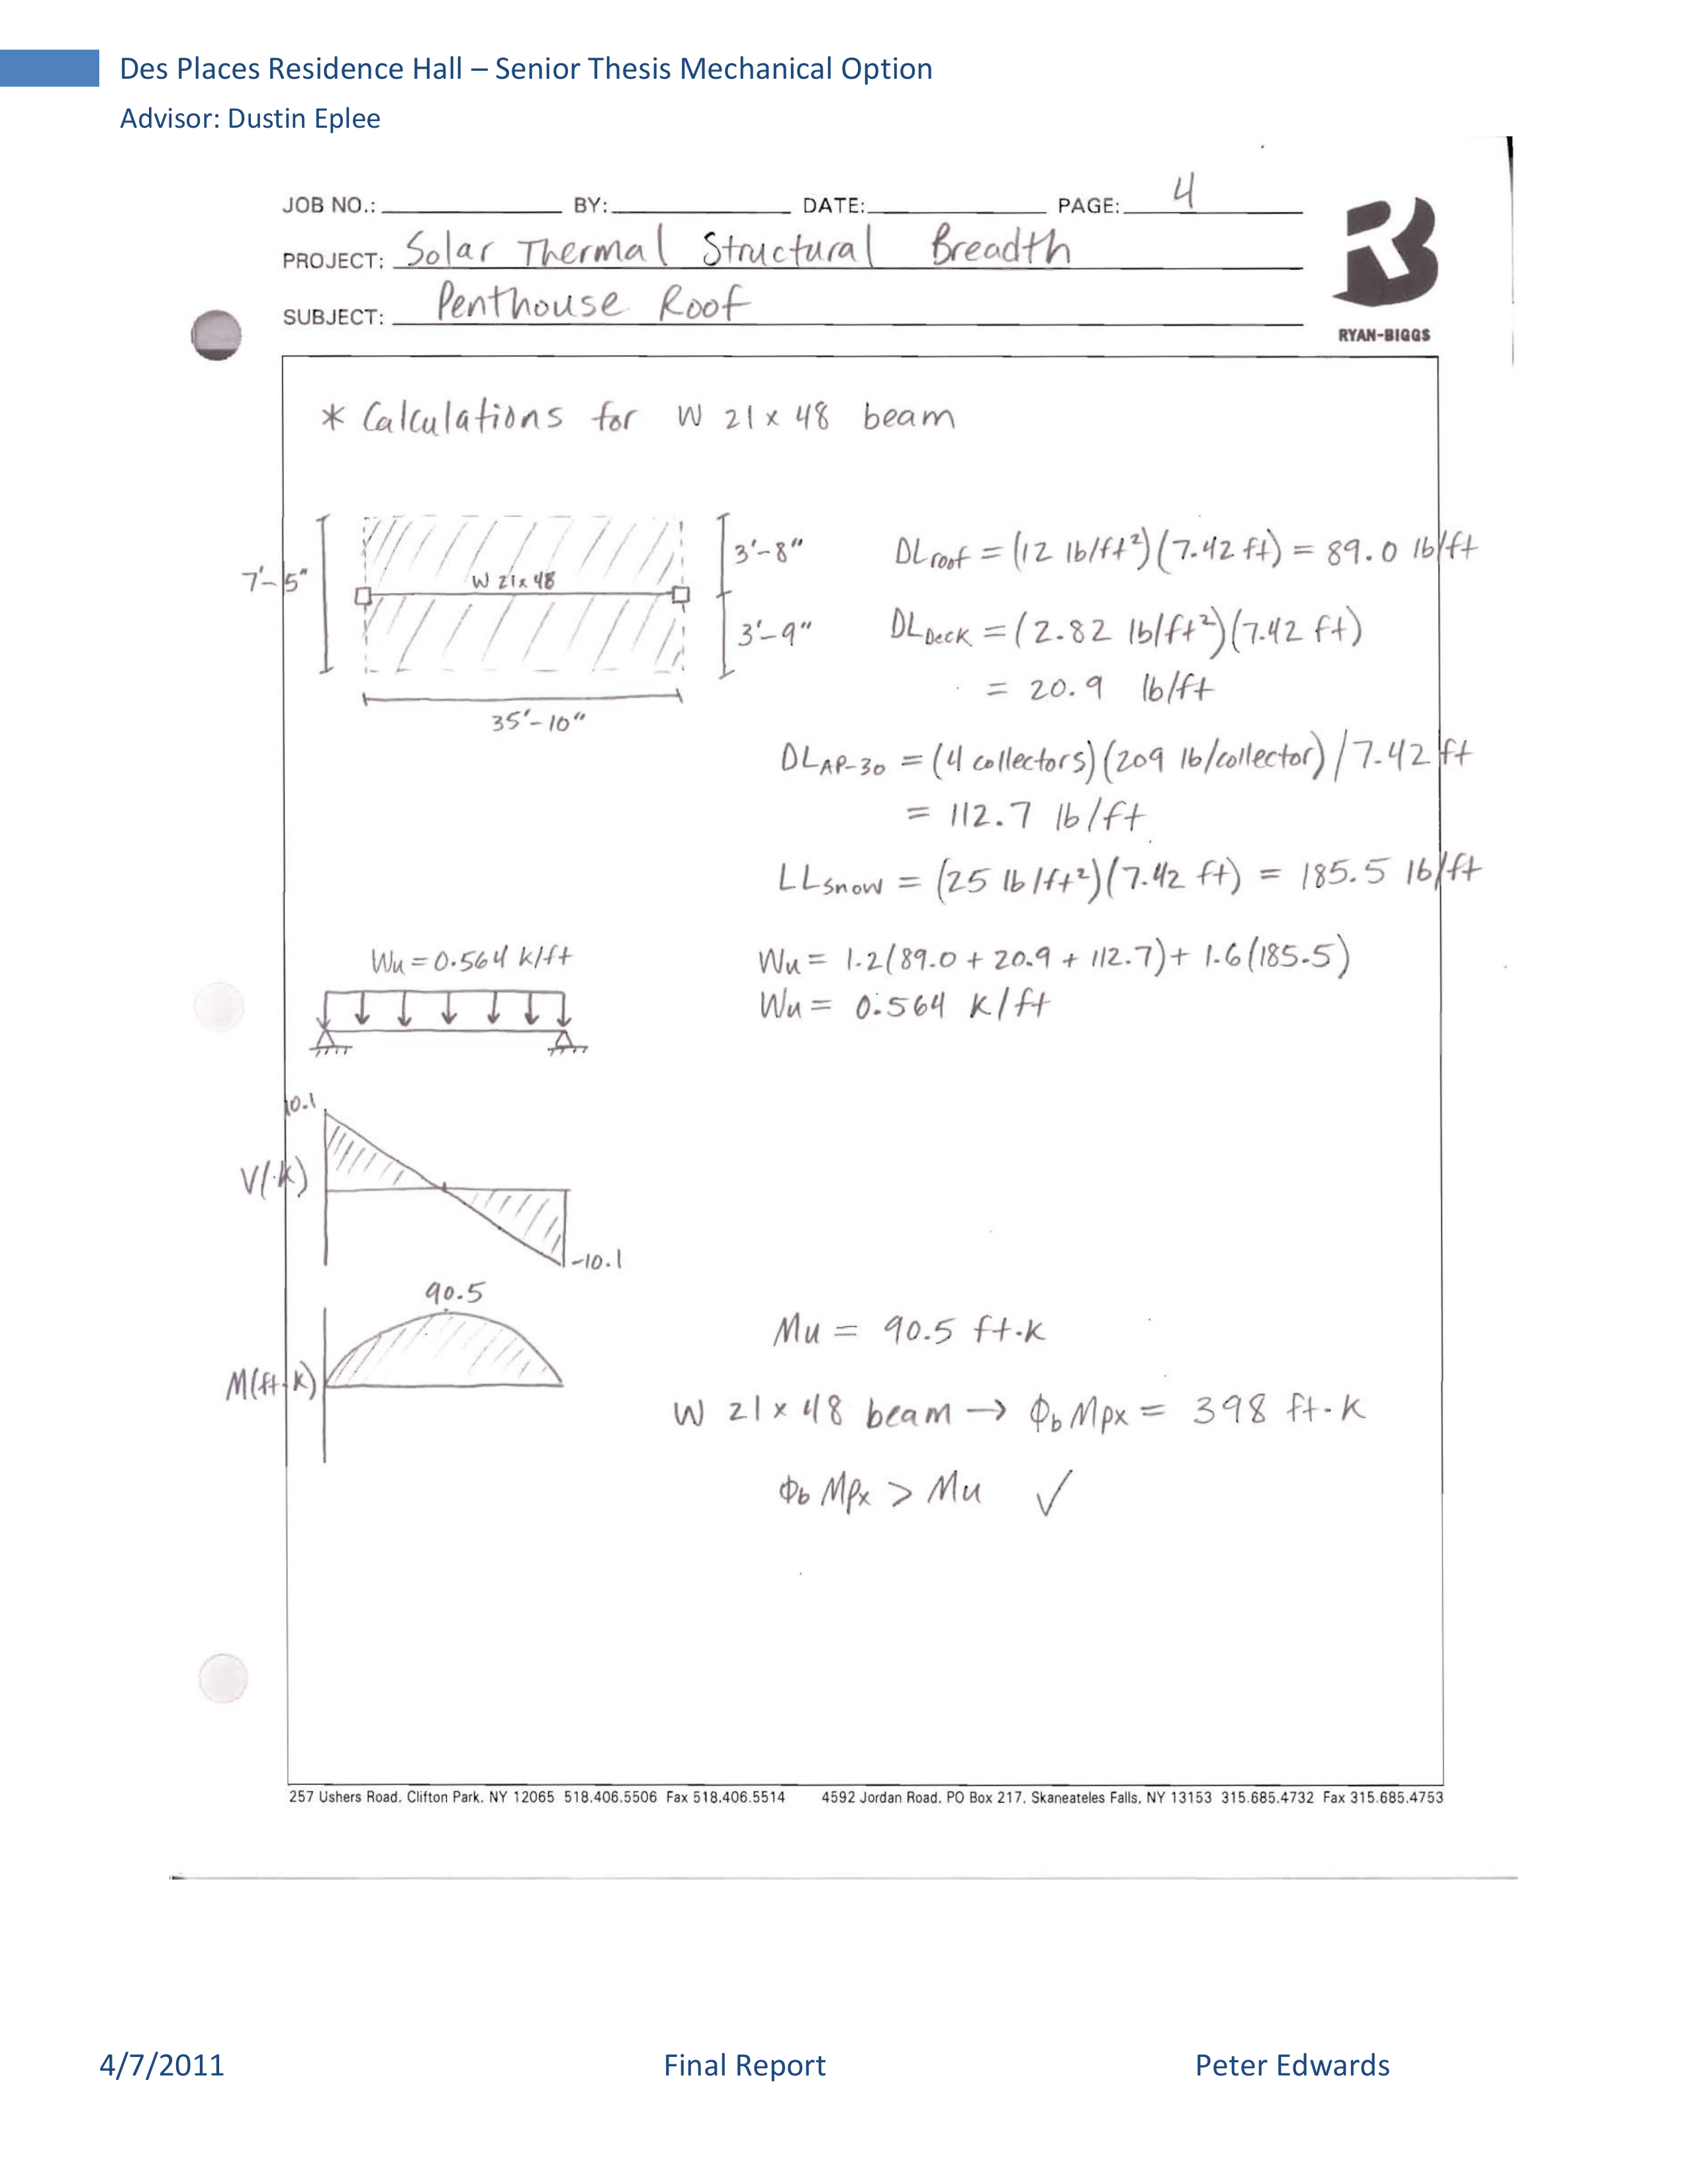 Des Places Residence Hall – Senior Thesis Mechanical Option
Advisor: Dustin Eplee
JOB NO.: BY: DATE: PAGE: 4
PROJECT: Solar Thermal Structural Breadth
SUBJECT: Penthouse Roof
RYAN-BIGGS
* Calculations for W 21 x 48 beam
7'-5"
W 21x48
3'-8"
3'-9"
35'-10"
DLroof = (12 lb/ft²)(7.42 ft) = 89.0 lb/ft
DLDeck = (2.82 lb/ft²)(7.42 ft)
= 20.9 lb/ft
DLAP-30 = (4 collectors)(209 lb/collector)/7.42 ft
= 112.7 lb/ft
LLsnow = (25 lb/ft²)(7.42 ft) = 185.5 lb/ft
Wu = 0.564 k/ft
Wu = 1.2(89.0 + 20.9 + 112.7) + 1.6(185.5)
Wu = 0.564 k/ft
10.1
V(k)
-10.1
90.5
M(ft·k)
Mu = 90.5 ft·k
W 21 x 48 beam → ΦbMpx = 398 ft·k
Φb Mpx > Mu ✓
257 Ushers Road, Clifton Park, NY 12065 518.406.5506 Fax 518.406.5514 4592 Jordan Road, PO Box 217, Skaneateles Falls, NY 13153 315.685.4732 Fax 315.685.4753
4/7/2011 Final Report Peter Edwards